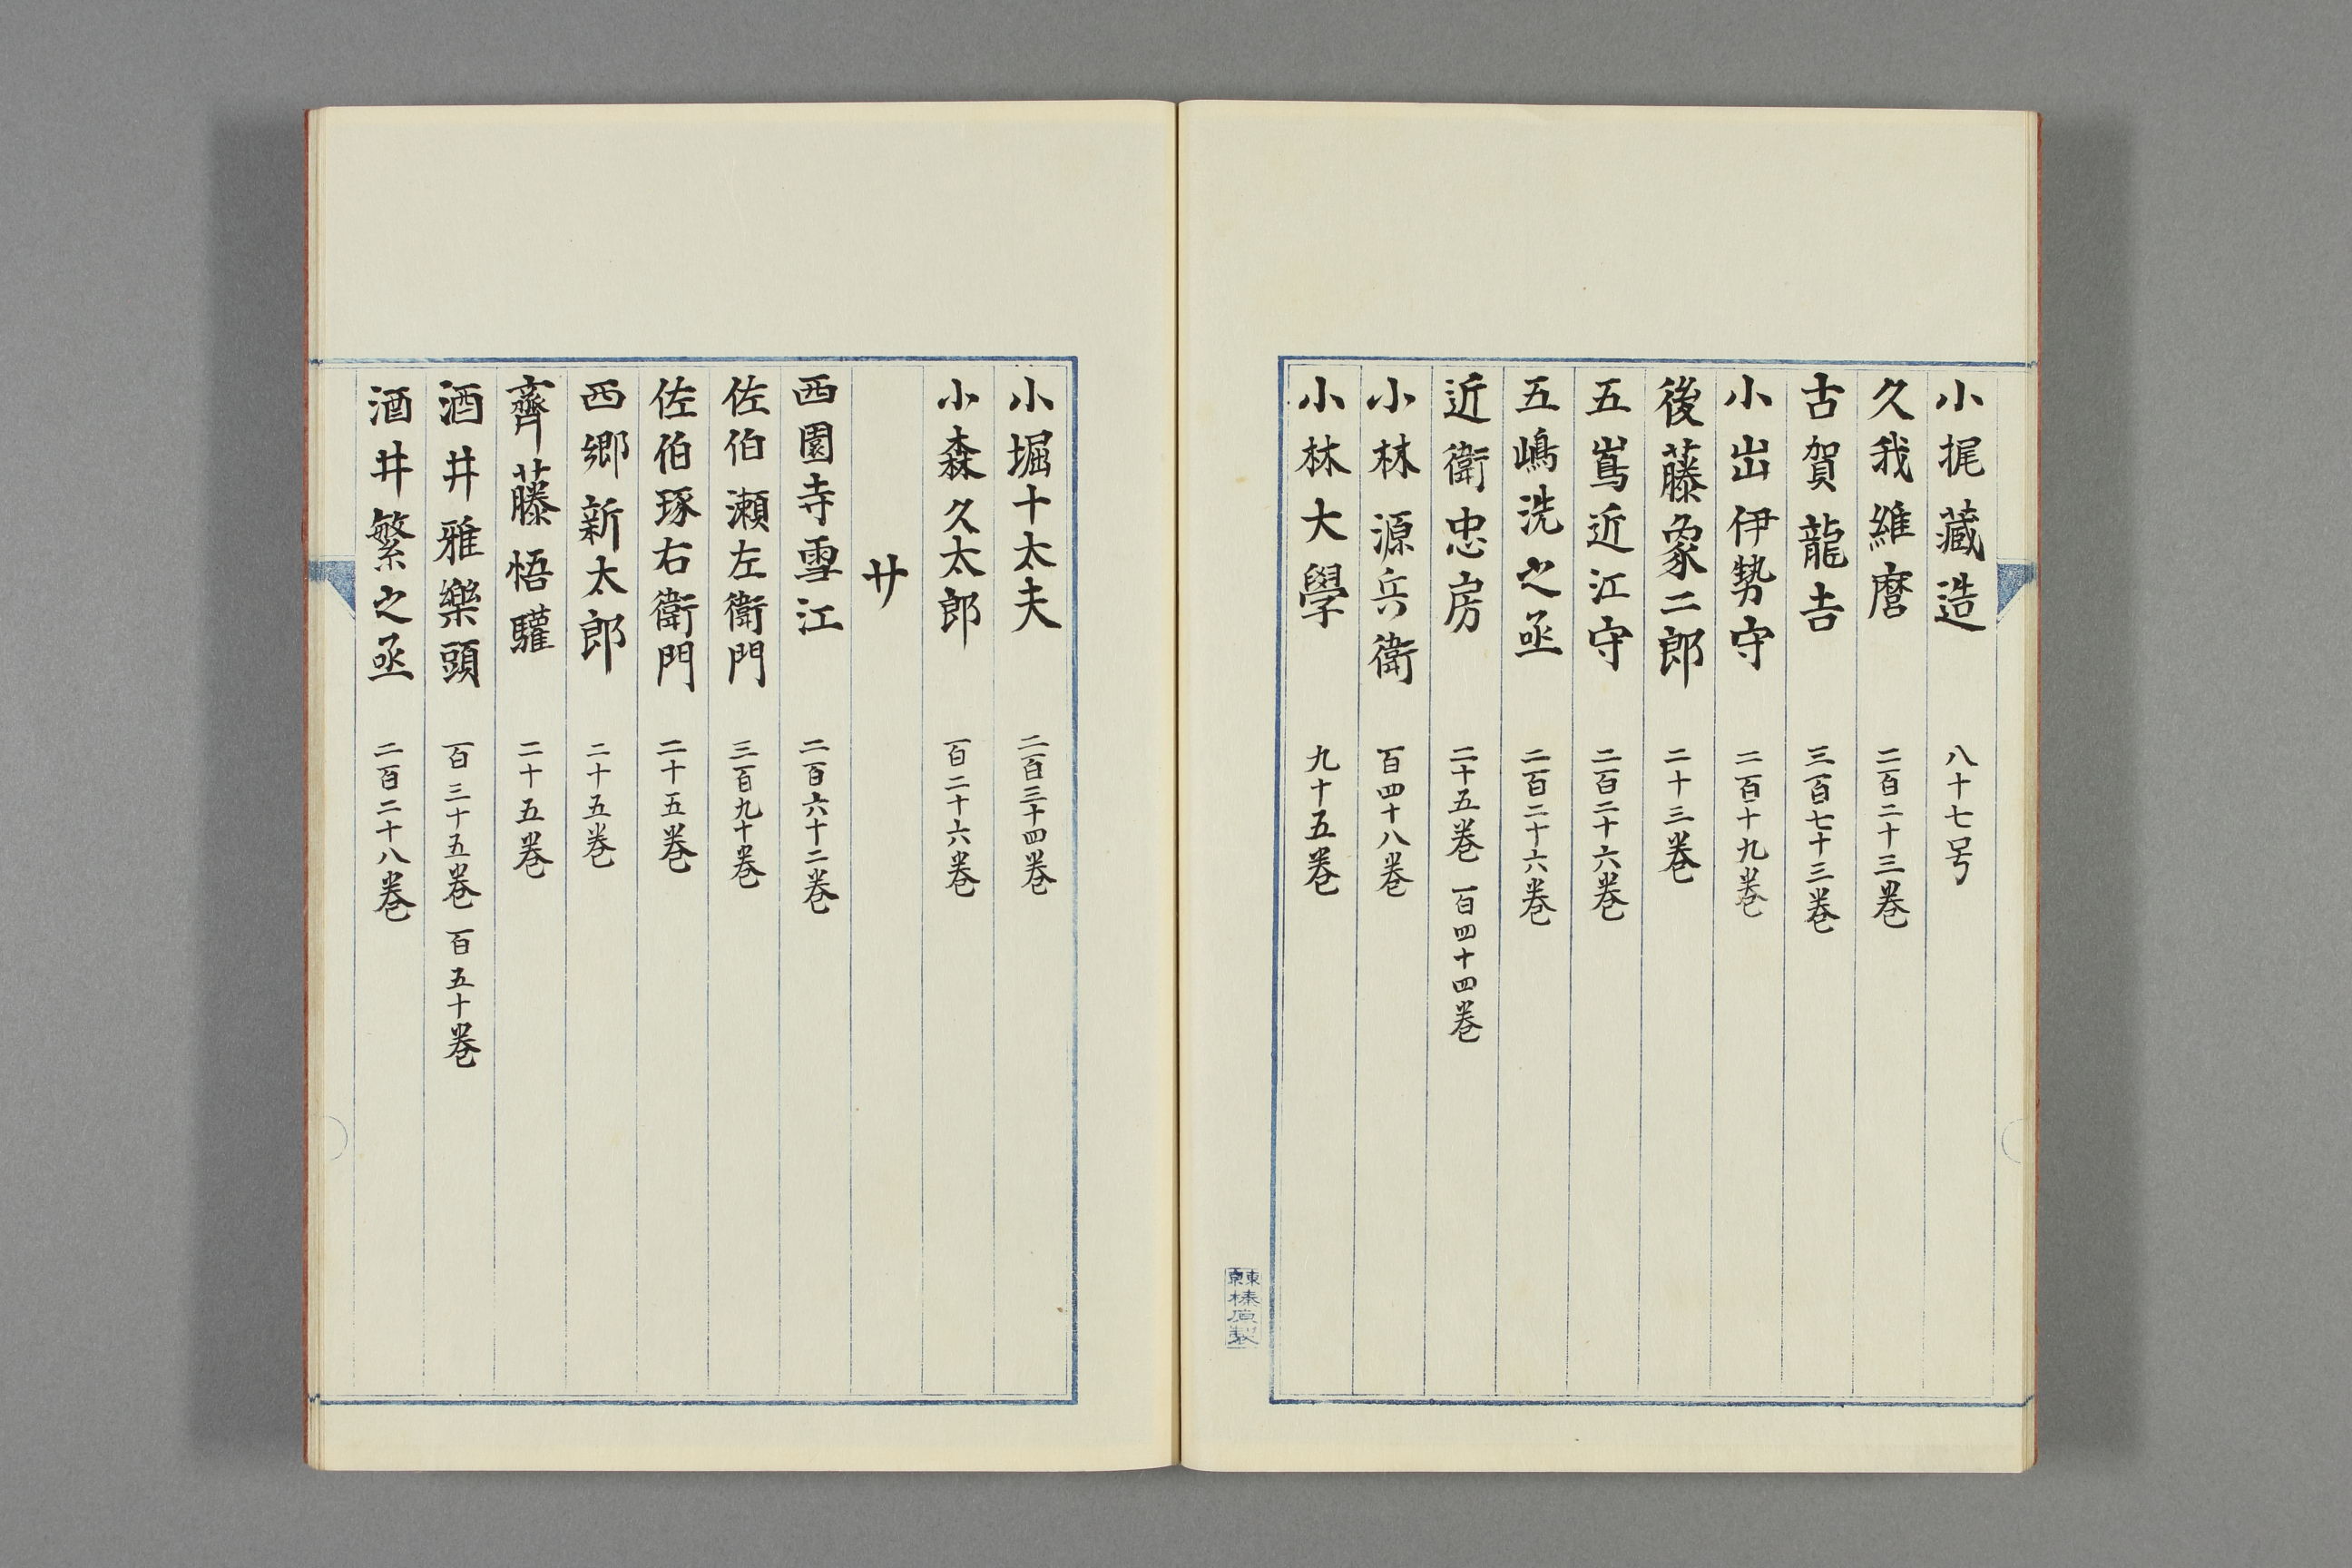 小梶藏造 八十七号
久我維麿 二百二十三巻
古賀龍吉 三百七十三巻
小出伊勢守 二百十九巻
後藤象二郎 二十三巻
五嶌近江守 二百二十六巻
五嶋洗之丞 二百二十六巻
近衛忠房 二十五巻 百四十四巻
小林源兵衛 百四十八巻
小林大學 九十五巻
東京榛原製
小堀十太夫 二百三十四巻
小森久太郎 百二十六巻
サ
西園寺雪江 二百六十二巻
佐伯瀬左衛門 三百九十巻
佐伯琢右衛門 二十五巻
西郷新太郎 二十五巻
齊藤悟驩 二十五巻
酒井雅樂頭 百三十五巻 百五十巻
酒井繁之丞 二百二十八巻